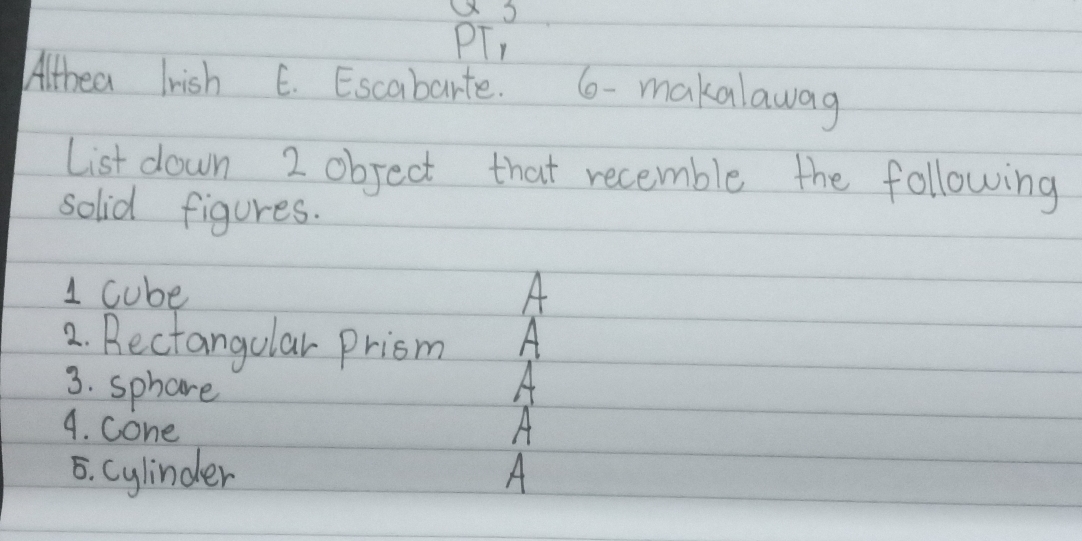 Q 3
PT,
Althea Irish E. Escabarte. 6- makalawag
List down 2 object that recemble the following
solid figures.
1 cube A
2. Rectangular prism A
3. sphare A
4. cone A
5. cylinder A